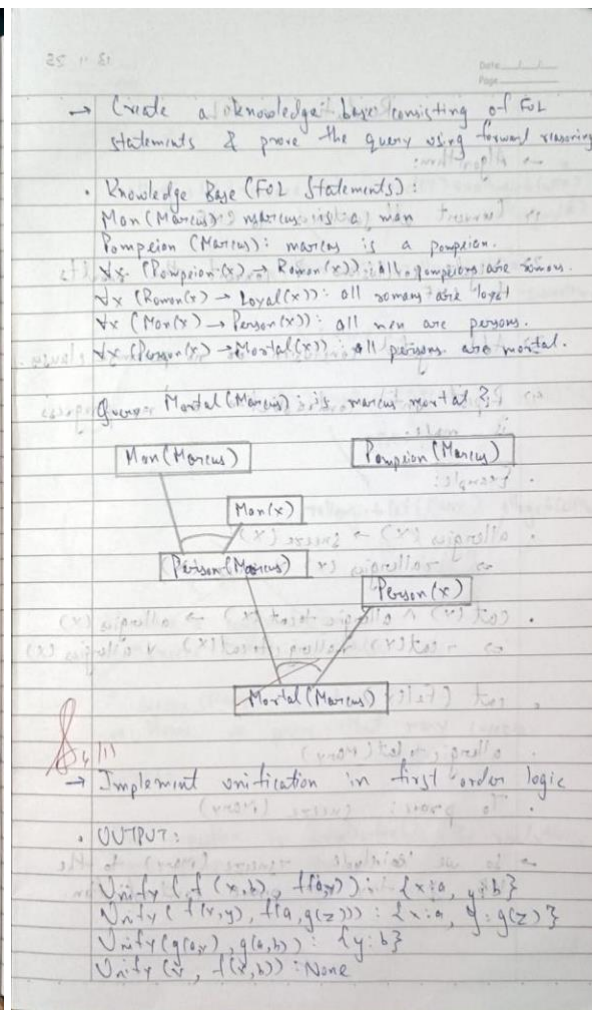 Date
Page
→ Create a knowledge base consisting of FOL
statements & prove the query using forward reasoning
• Knowledge Base (FOL Statements):
Man(Marcus): marcus is a man
Pompeion (Marcus): marcus is a pompeion.
∀x (Pompeion(x) → Roman(x)): all pompeions are romans.
∀x (Roman(x) → Loyal(x)): all romans are loyal
∀x (Man(x) → Person(x)): all men are persons.
∀x (Person(x) → Mortal(x)): all persons are mortal.
Query Mortal (Marcus): is marcus mortal?
Man(Marcus) Pompeion (Marcus)
Man(x)
Person(Marcus)
Person(x)
Mortal (Marcus)
→ Implement unification in first order logic
• OUTPUT:
Unify (f(x,b), f(a,y)): {x:a, y:b}
Unify (f(x,y), f(a,g(z))): {x:a, y:g(z)}
Unify(g(a,y), g(a,b)): {y:b}
Unify (x, f(x,b)): None